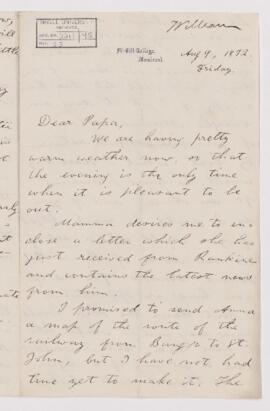 William
McGILL UNIVERSITY
ARCHIVES
McGill College,
Montreal.
Aug 9, 1872
Friday
Dear Papa,
We are having pretty
warm weather now, so that
the evening is the only time
when it is pleasant to be
out.
Mamma desires me to en-
close a letter which she has
just received from Rankine
and contains the latest news
from him.
I promised to send Anna
a map of the route of the
railway from Bangor to St.
John, but I have not had
time yet to make it. She